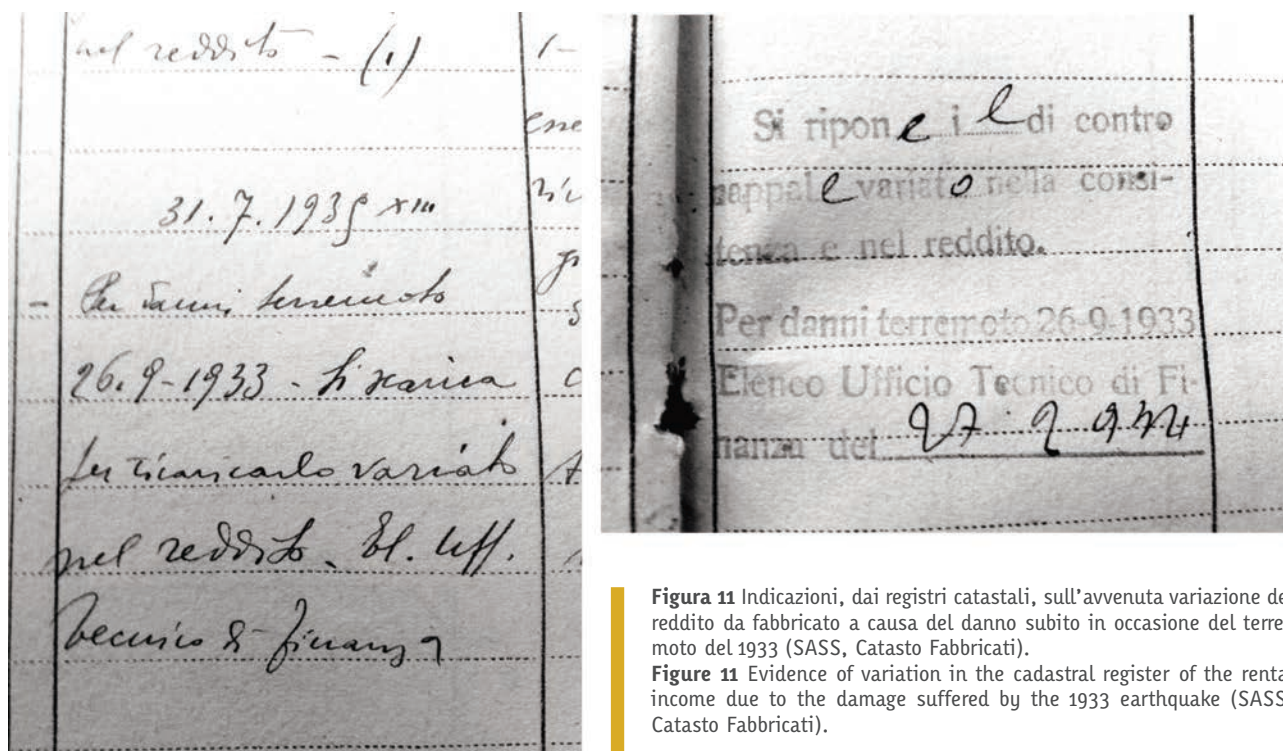 nel reddito - (1)
31.7.1935 XIII
- Per danni terremoto
26.9-1933 - Si scarica
per ricaricarlo variato
nel reddito. El. Uff.
Tecnico di finanza
Si ripone il di contro
mappale variato nella consi-
tenza e nel reddito.
Per danni terremoto 26-9-1933
Elenco Ufficio Tecnico di Fi-
nanza del 27 2 934
Figura 11 Indicazioni, dai registri catastali, sull'avvenuta variazione de
reddito da fabbricato a causa del danno subito in occasione del terre
moto del 1933 (SASS, Catasto Fabbricati).
Figure 11 Evidence of variation in the cadastral register of the renta
income due to the damage suffered by the 1933 earthquake (SASS
Catasto Fabbricati).